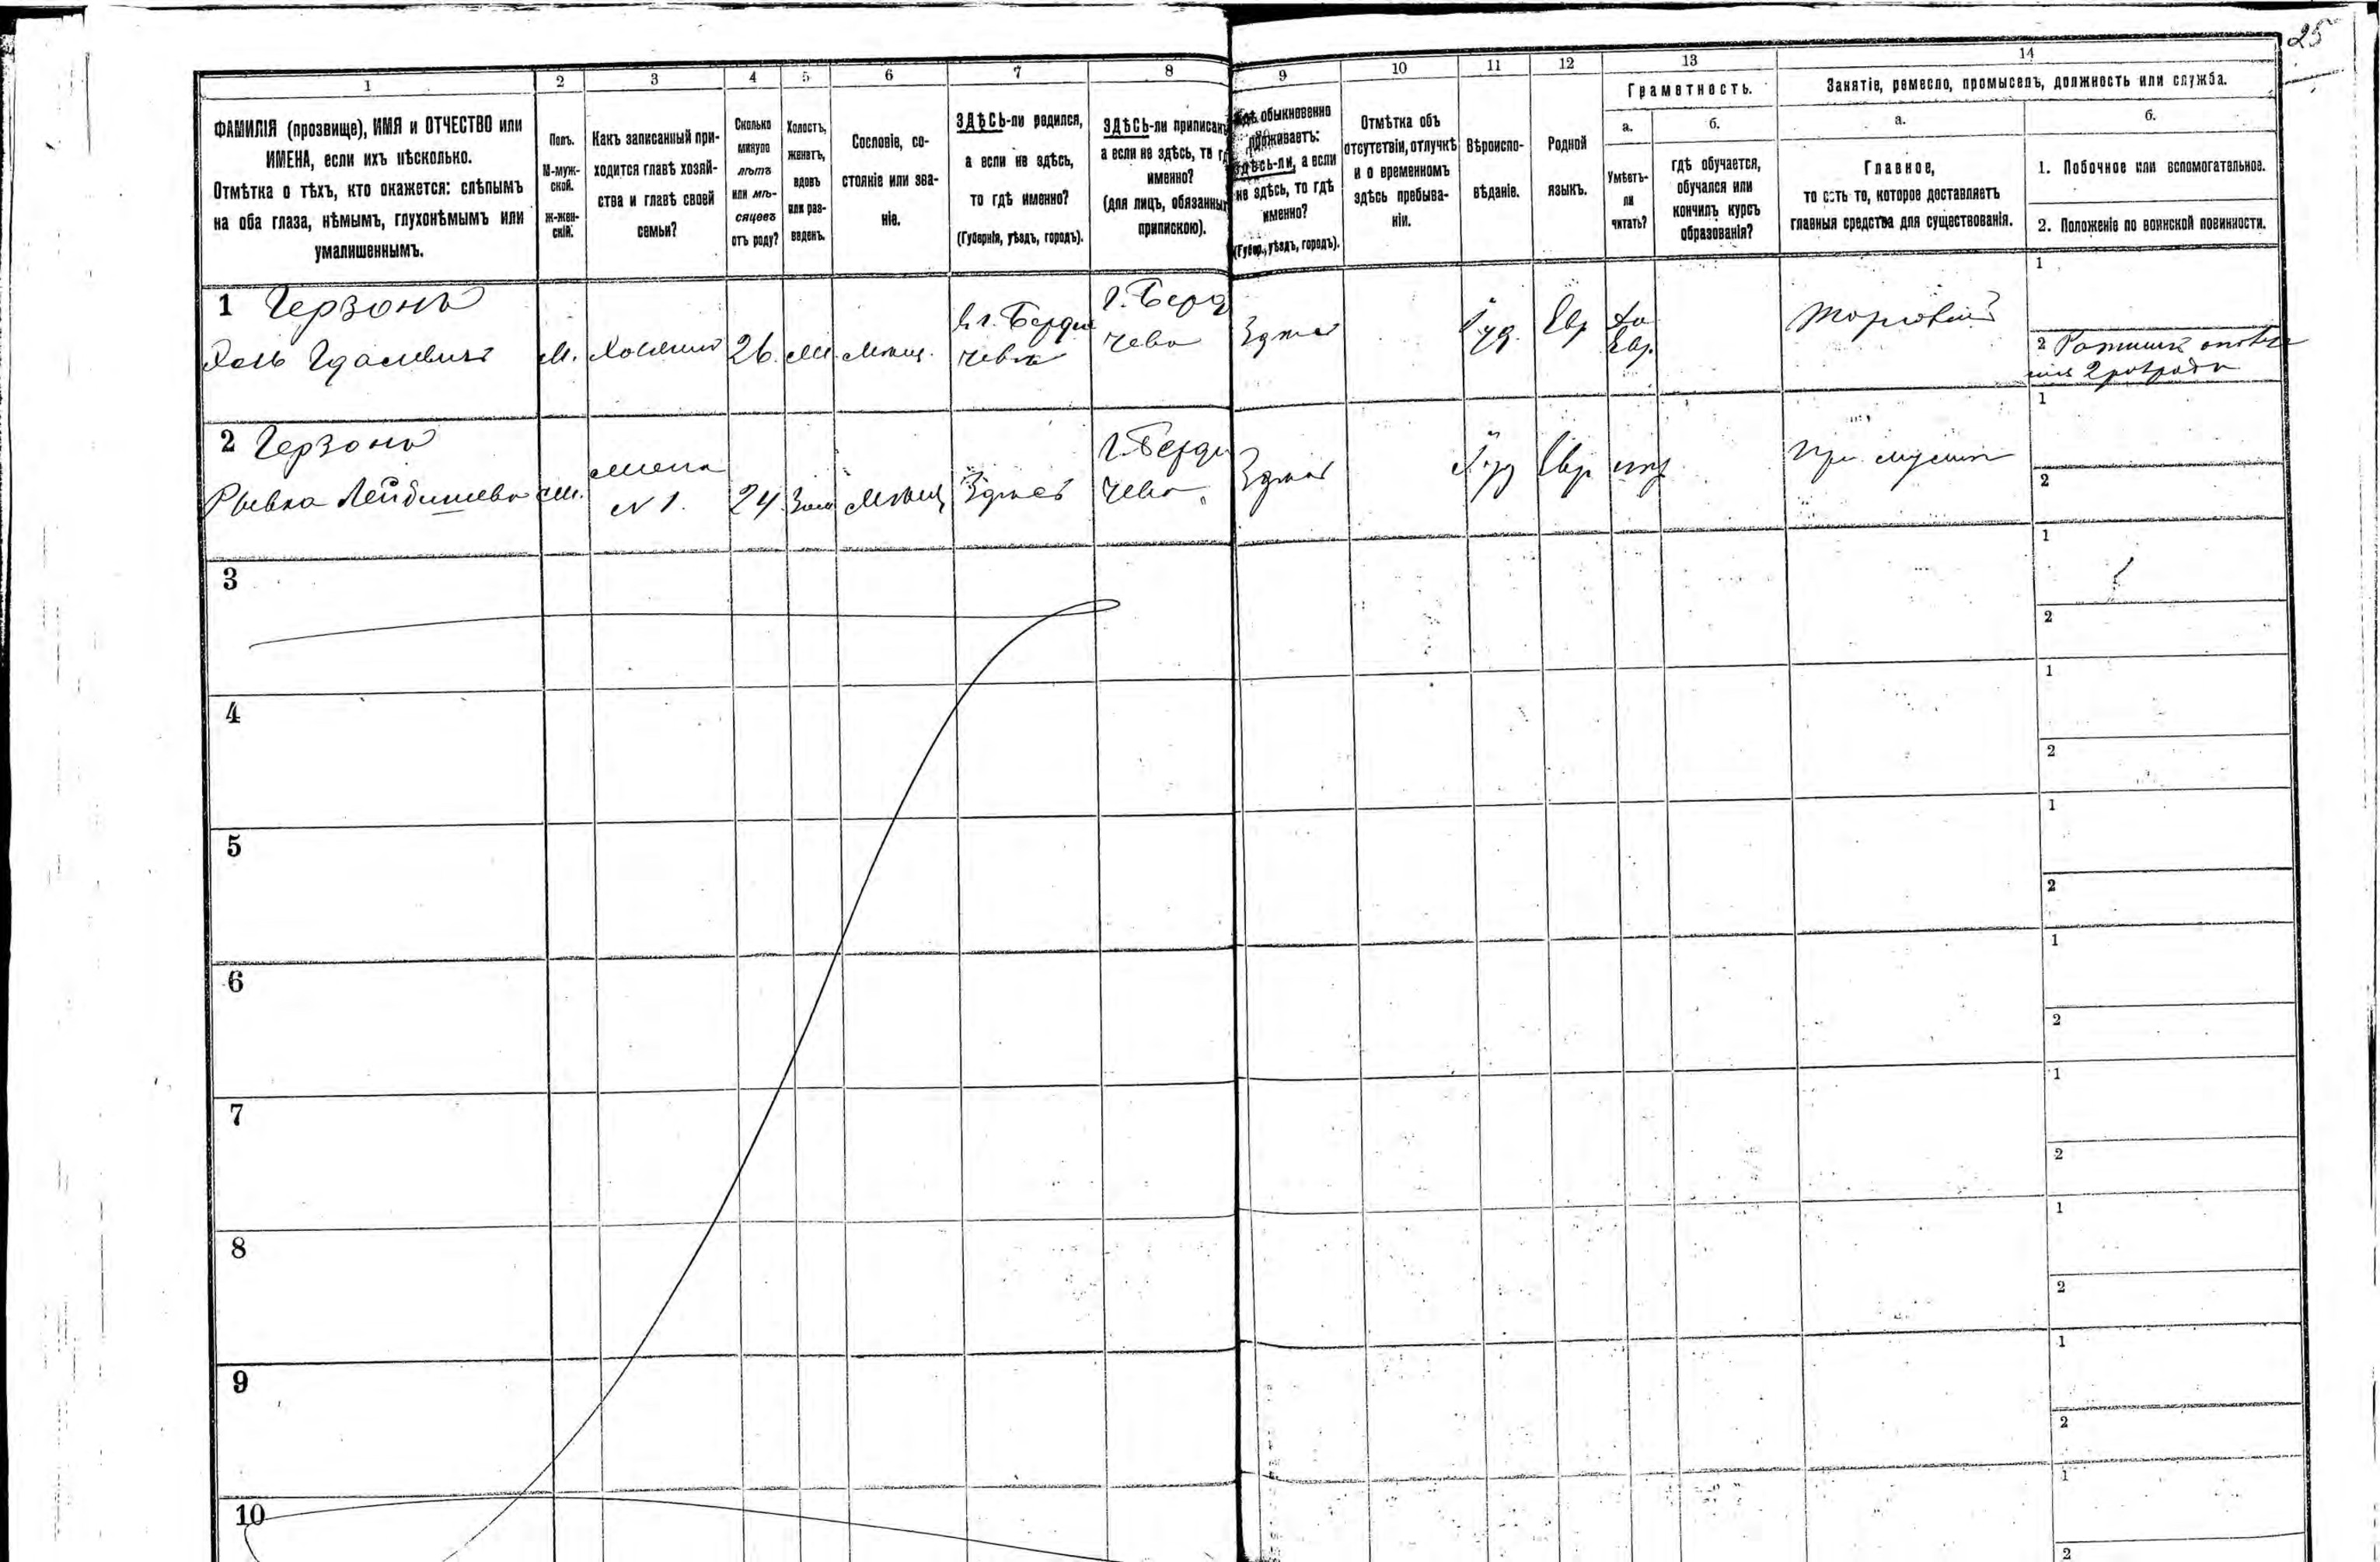 25
1
2
3
4
5
6
7
8
9
10
11
12
13
14
ФАМИЛІЯ (прозвище), ИМЯ и ОТЧЕСТВО или
ИМЕНА, если ихъ нѣсколько.
Отмѣтка о тѣхъ, кто окажется: слѣпымъ
на оба глаза, нѣмымъ, глухонѣмымъ или
умалишеннымъ.
Полъ.
М-муж-
ской.
Ж-жен-
скій.
Какъ записанный при-
ходится главѣ хозяй-
ства и главѣ своей
семьи?
Сколько
минуло
лѣтъ
или мѣ-
сяцевъ
отъ роду?
Холостъ,
женатъ,
вдовъ
или раз-
веденъ.
Сословіе, со-
стояніе или зва-
ніе.
ЗДѢСЬ-ли родился,
а если не здѣсь,
то гдѣ именно?
(Губернія, уѣздъ, городъ).
ЗДѢСЬ-ли приписанъ
а если не здѣсь, то г
именно?
(для лицъ, обязанны
припискою).
Гдѣ обыкновенно
проживаетъ:
здѣсь-ли, а если
не здѣсь, то гдѣ
именно?
(Губер., уѣздъ, городъ).
Отмѣтка объ
отсутствіи, отлучкѣ
и о временномъ
здѣсь пребыва-
ніи.
Вѣроиспо-
вѣданіе.
Родной
языкъ.
Грамотность.
а.
Умѣетъ-
ли
читать?
б.
гдѣ обучается,
обучался или
кончилъ курсъ
образованія?
Занятіе, ремесло, промыселъ, должность или служба.
а.
Главное,
то есть то, которое доставляетъ
главныя средства для существованія.
б.
1. Побочное или вспомогательное.
2. Положеніе по воинской повинности.
1 Герзонъ
Гдалевичъ
М.
Хозяинъ
26.
Мѣщ.
Въ г. Берди
чевѣ
г. Берд
чева
Здѣсь
Іуд.
Евр
да
Евр.
Торговецъ
1
2 Ратникъ ополче
нія 2 разряда
2 Герзонъ
Рывка Лейбишева
жена
№ 1.
24
Зам
Мѣщ
Здѣсь
г. Берди
чева
Здѣсь
Іуд
Евр
нѣт
При мужѣ
1
2
3
1
2
4
1
2
5
1
2
6
1
2
7
1
2
8
1
2
9
1
2
10
1
2